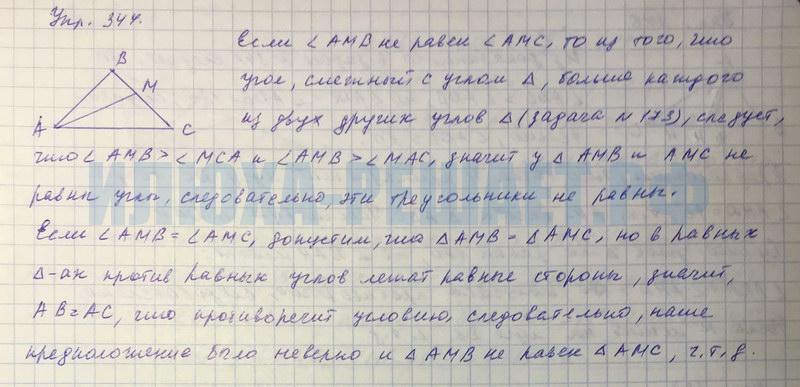 Упр. 344.
B
M
A
C
Если ∠AMB не равен ∠AMC, то из того, что
угол, смежный с углом Δ, больше каждого
из двух других углов Δ (задача N 173), следует,
что ∠AMB > ∠MCA и ∠AMB > ∠MAC, значит у Δ AMB и AMC не
равны углы, следовательно, эти треугольники не равны.
Если ∠AMB = ∠AMC, допустим, что ΔAMB = ΔAMC, но в равных
Δ-ах против равных углов лежат равные стороны, значит,
AB = AC, что противоречит условию, следовательно, наше
предположение было неверно и ΔAMB не равен ΔAMC, ч.т.д.
ИЛЮХА РЕШАЕТ.РФ